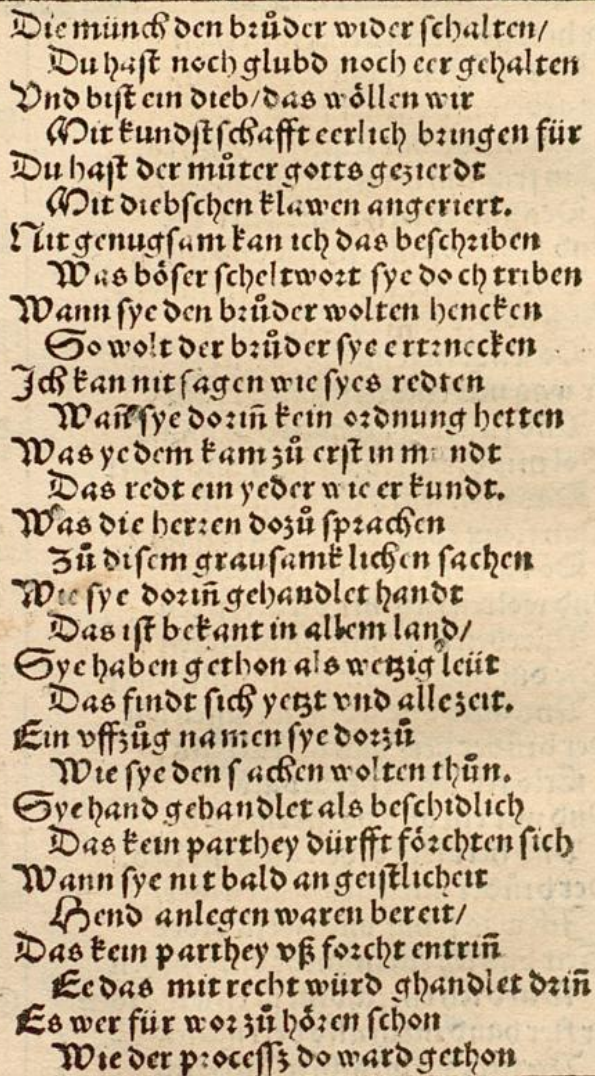 Die münch den brůder wider schalten/
Du hast noch glubd noch eer gehalten
Vnd bist ein dieb/das wöllen wir
Mit kundstschafft eerlich bringen für
Du hast der můter gotts gezierdt
Mit diebschen klawen angeriert.
Nit genugsam kan ich das beschriben
Was böser scheltwort sye doch triben
Wann sye den brůder wolten hencken
So wolt der brůder sye ertrnecken
Ich kan nit sagen wie syes redten
Wañ sye doriñ kein ordnung hetten
Was yedem kam zů erst in mundt
Das redt ein yeder wie er kundt.
Was die herren dozů sprachen
Zů disem grausamklichen sachen
Wie sye doriñ gehandlet handt
Das ist bekant in allem land/
Sye haben gethon als wetzig leüt
Das findt sich yetzt vnd alle zeit.
Ein vffzůg namen sye dorzů
Wie sye den sachen wolten thůn.
Sye hand gehandlet als beschidlich
Das kein parthey dürfft förchten sich
Wann sye nit bald an geistlicheit
Hend anlegen waren bereit/
Das kein parthey vß forcht entriñ
Ee das mit recht würd ghandlet driñ
Es wer für wor zů hören schon
Wie der processz do ward gethon